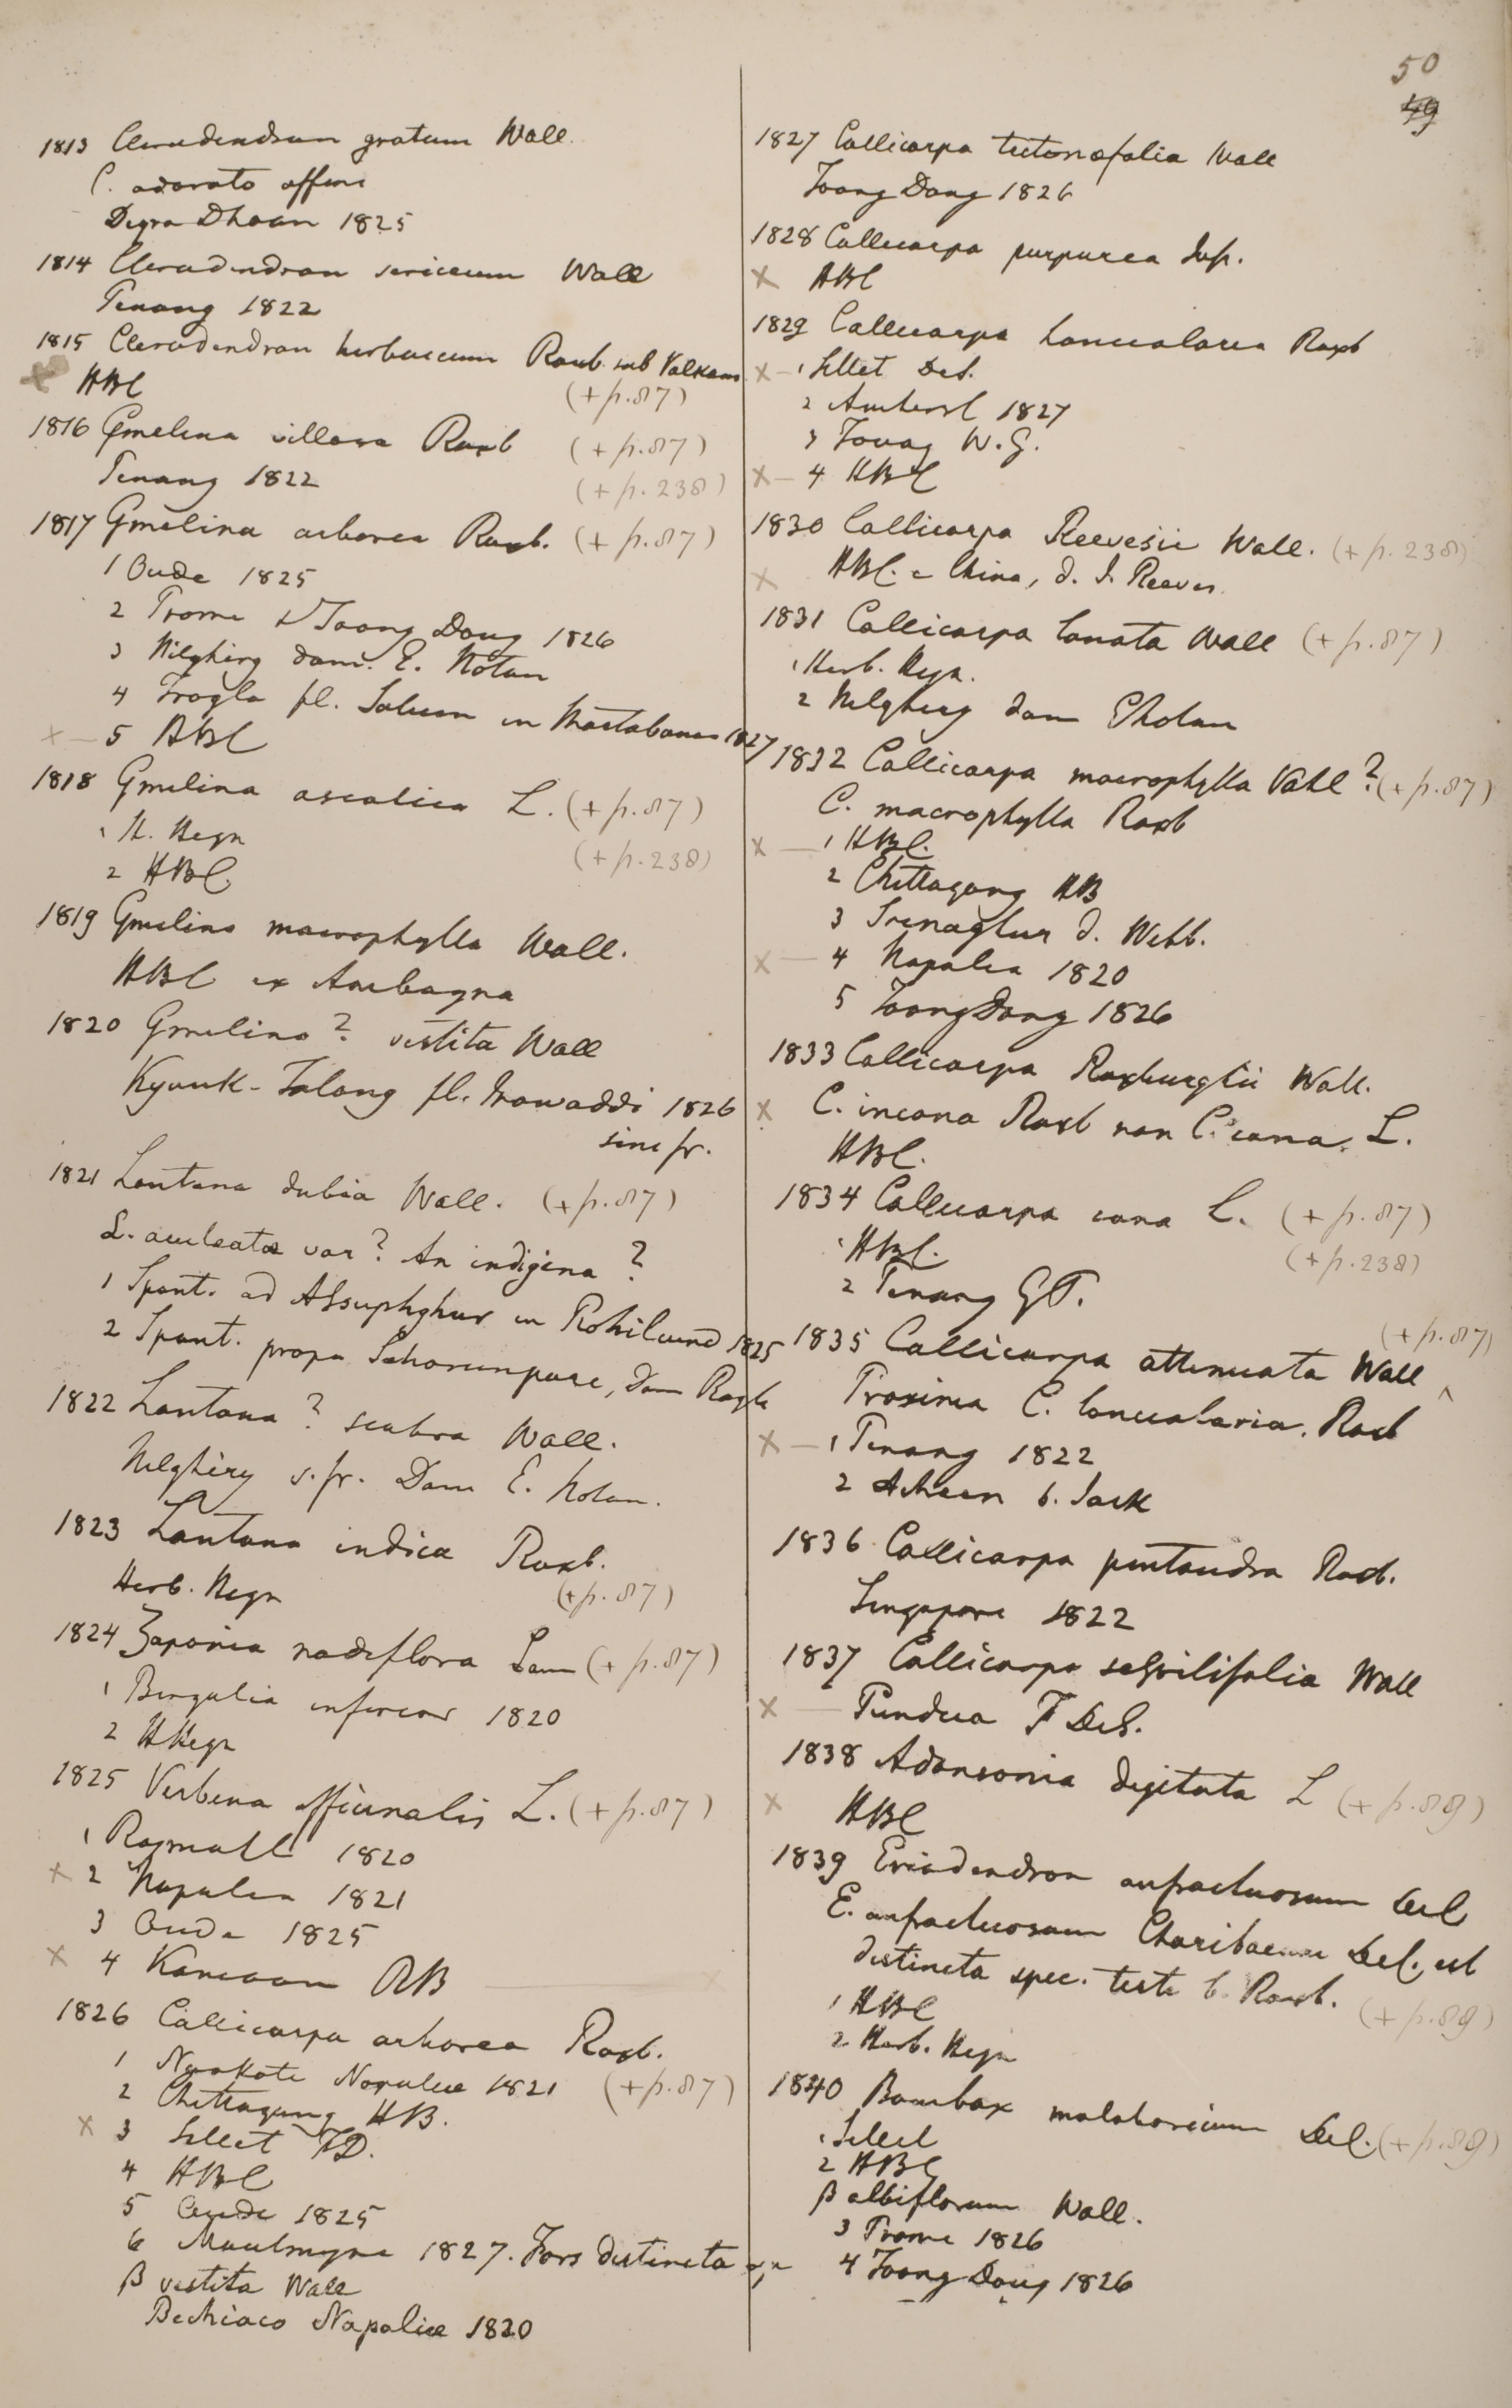 50
49
1813 Clerodendrum gratum Wall.
C. odorato affine
Degra Dhoon 1825
1814 Clerodendron sericeum Wall
Penang 1822
1815 Clerodendron herbaceum Roxb. sub Volkam.
× HBC (+ p. 87)
1816 Gmelina villosa Roxb (+ p. 87)
Penang 1822 (+ p. 238)
1817 Gmelina arborea Roxb. (+ p. 87)
1 Oude 1825
2 Prome & Toong Dong 1826
3 Nilghiry dom. E. Noton
4 Trogla fl. Saluen in Martabania 1827
× — 5 HBC
1818 Gmelina asiatica L. (+ p. 87)
1 H. Heyn (+ p. 238)
2 HBC
1819 Gmelina macrophylla Wall.
HBC ex Amboyna
1820 Gmelina? vestita Wall
Kyouk-Talong fl. Irawaddi 1826
sine fr.
1821 Lantana dubia Wall. (+ p. 87)
L. aculeatæ var? An indigena?
1 Spont. ad Absuphghur in Rohilcund 1825
2 Spont. prope Saharunpore, dom Royle
1822 Lantana? scabra Wall.
Nilghiry s. fr. Dom E. Noton.
1823 Lantana indica Roxb.
Herb. Heyn (+ p. 87)
1824 Zapania nodiflora Lam (+ p. 87)
1 Bengalia inferior 1820
2 H Heyn
1825 Verbena officinalis L. (+ p. 87)
1 Rajmahl 1820
× 2 Napalia 1821
3 Oude 1825
× 4 Kamaon RB
1826 Callicarpa arborea Roxb.
1 Noakote Napaliæ 1821 (+ p. 87)
2 Chittagong HB.
× 3 Sillet FD.
4 HBC
5 Oude 1825
6 Moulmyne 1827. Fors distincta sp
β vestita Wall
Bechiaco Napaliæ 1820
1827 Callicarpa tectonæfolia Wall
Toong Dong 1826
1828 Callicarpa purpurea Juss.
× HBC
1829 Callicarpa lanceolaria Roxb
× — 1 Sillet DeS.
2 Amherst 1827
3 Tavoy W. G.
× — 4 HBC
1830 Callicarpa Reevesii Wall. (+ p. 238)
× HBC. e China, d. J. Reeves.
1831 Callicarpa lanata Wall (+ p. 87)
1 Herb. Heyn.
2 Nilghiry dom E Noton
1832 Callicarpa macrophylla Vahl? (+ p. 87)
C. macrophylla Roxb
× — 1 HBC.
2 Chittagong HB
3 Srenaghur d. Webb.
× — 4 Napalia 1820
5 Toong Dong 1826
1833 Callicarpa Roxburghii Wall.
× C. incana Roxb non C. cana. L.
HBC.
1834 Callicarpa cana L. (+ p. 87)
1 HBC. (+ p. 238)
2 Penang GP.
1835 Callicarpa attenuata Wall (+ p. 87)
Proxima C. lanceolaria. Roxb
× — 1 Penang 1822
2 Acheen b. Jack
1836 Callicarpa pentandra Roxb.
Singapore 1822
1837 Callicarpa sesquilifolia Wall
× — Pundua F DeS.
1838 Adansonia digitata L (+ p. 89)
× HBC
1839 Eriodendron anfractuosum DeC
E. anfractuosum Charibaeum DeC. est
distincta spec. teste b. Roxb. (+ p. 89)
1 HBC
2 Herb. Heyn
1840 Bombax malabaricum DeC. (+ p. 89)
1 Sillet
2 HBC
β albiflorum Wall.
3 Prome 1826
4 Toong Dong 1826